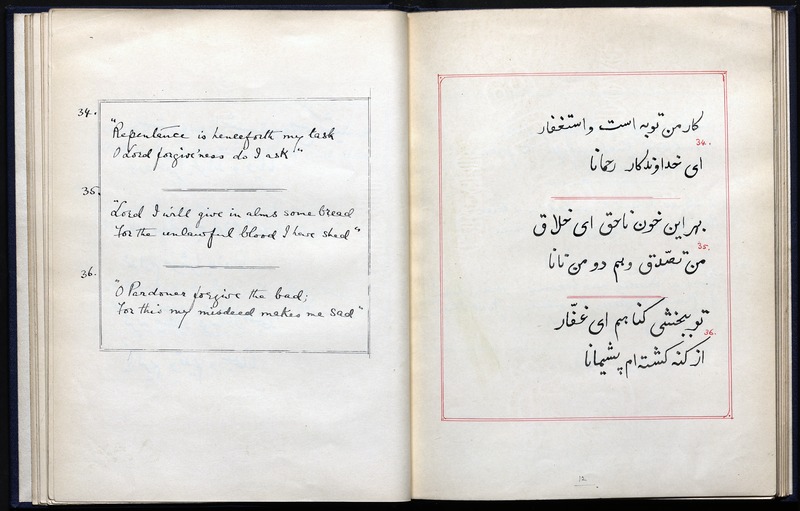 34.
"Repentance is henceforth my task
O Lord forgive'ness do I ask"
35.
"Lord I will give in alms some bread
For the unlawful blood I have shed"
36.
"O Pardoner forgive the bad;
For this my misdeed makes me sad"
کار من توبه است و استغفار
34.
ای خداوندکار رحمانا
بهر این خون ناحق ای خلاق
35.
من تصّدق دهم دو من نانا
تو ببخشی گناهم ای غفّار
36.
از گنه گشته ام پشیمانا
۱۲